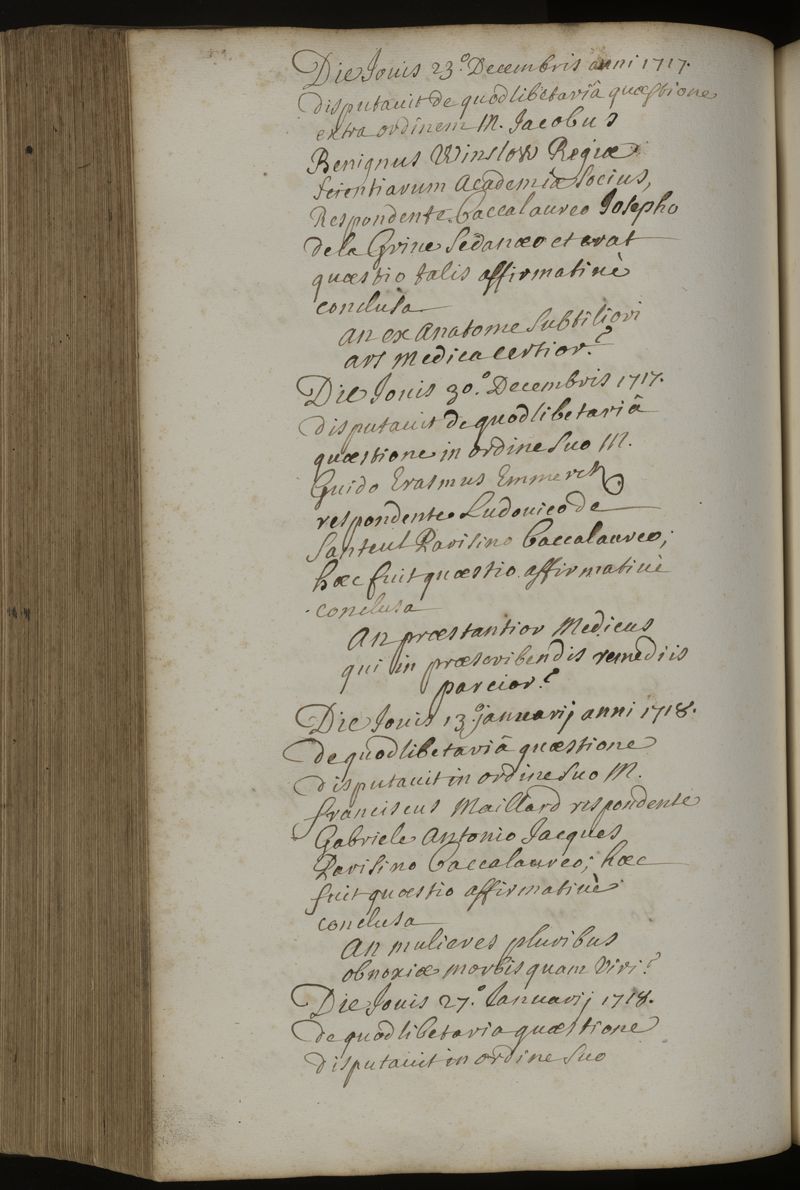 Die Jouis 23.º Decembris anni 1717.
disputauit de quodlibetariâ quæstione
extra ordinem M. Jacobus
Benignus Winslow Regiæ
scientiarum Academiæ socius,
Respondente Baccalaureo Josepho
de la Grive Sedanæo et erat
quæstio talis affirmatiuè
conclusa
An ex Anatome subtiliori
ars Medica certior?
Die Jouis 30.º Decembris 1717.
disputauit de quodlibetariâ
quæstione in ordine suo M.
Guido Erasmus Emmerez
respondente Ludouico de
Santeul Parisino Baccalaureo;
hæc fuit quæstio affirmatiuè
conclusa
An præstantior Medicus
qui in præscribendis remediis
parcior?
Die Jouis 13.º januarij anni 1718.
de quodlibetariâ quæstione
disputauit in ordine suo M.
franciscus Maillard respondente
Gabriele Antonio Jacques
Parisino Baccalaureo; hæc
fuit quæstio affirmatiuè
conclusa
An mulieres pluribus
obnoxiæ morbis quam Viri?
Die Jouis 27.º Januarij 1718.
de quodlibetaria quæstione
disputauit in ordine suo